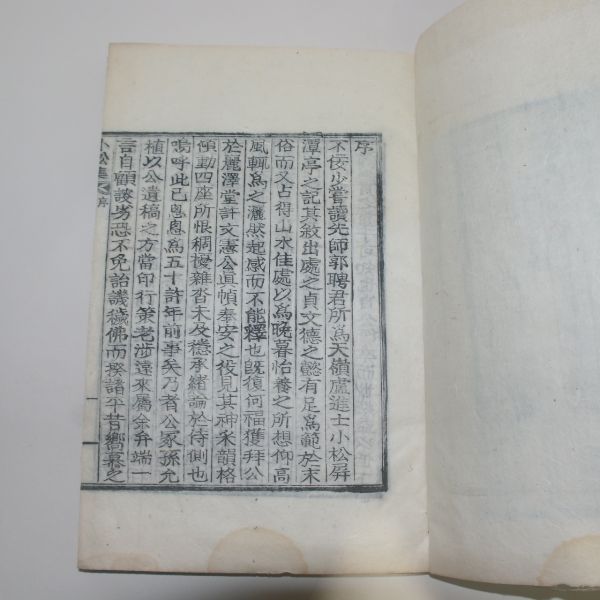 序
不佞少嘗讀先師郭聘君所爲天嶺盧進士小松屛
潭亭之記其敘出處之貞文德之懿有足爲範於末
俗而又占得山水佳處以爲晩暮怡養之所想仰高
風輒爲之灑然起感而不能釋也旣復何福獲拜公
於麗澤堂許文憲公眞幀奉安之役見其神采韻格
傾動四座所恨稠擾雜沓未及穩承緖論於侍側也
嗚呼此已悤悤爲五十許年前事矣乃者公冢孫允
植以公遺稿之方當印行策老涉遠來屬余弁端一
言自顧諓劣恐不免詒譏穢佛而揆諸平昔嚮慕之
小松集 序